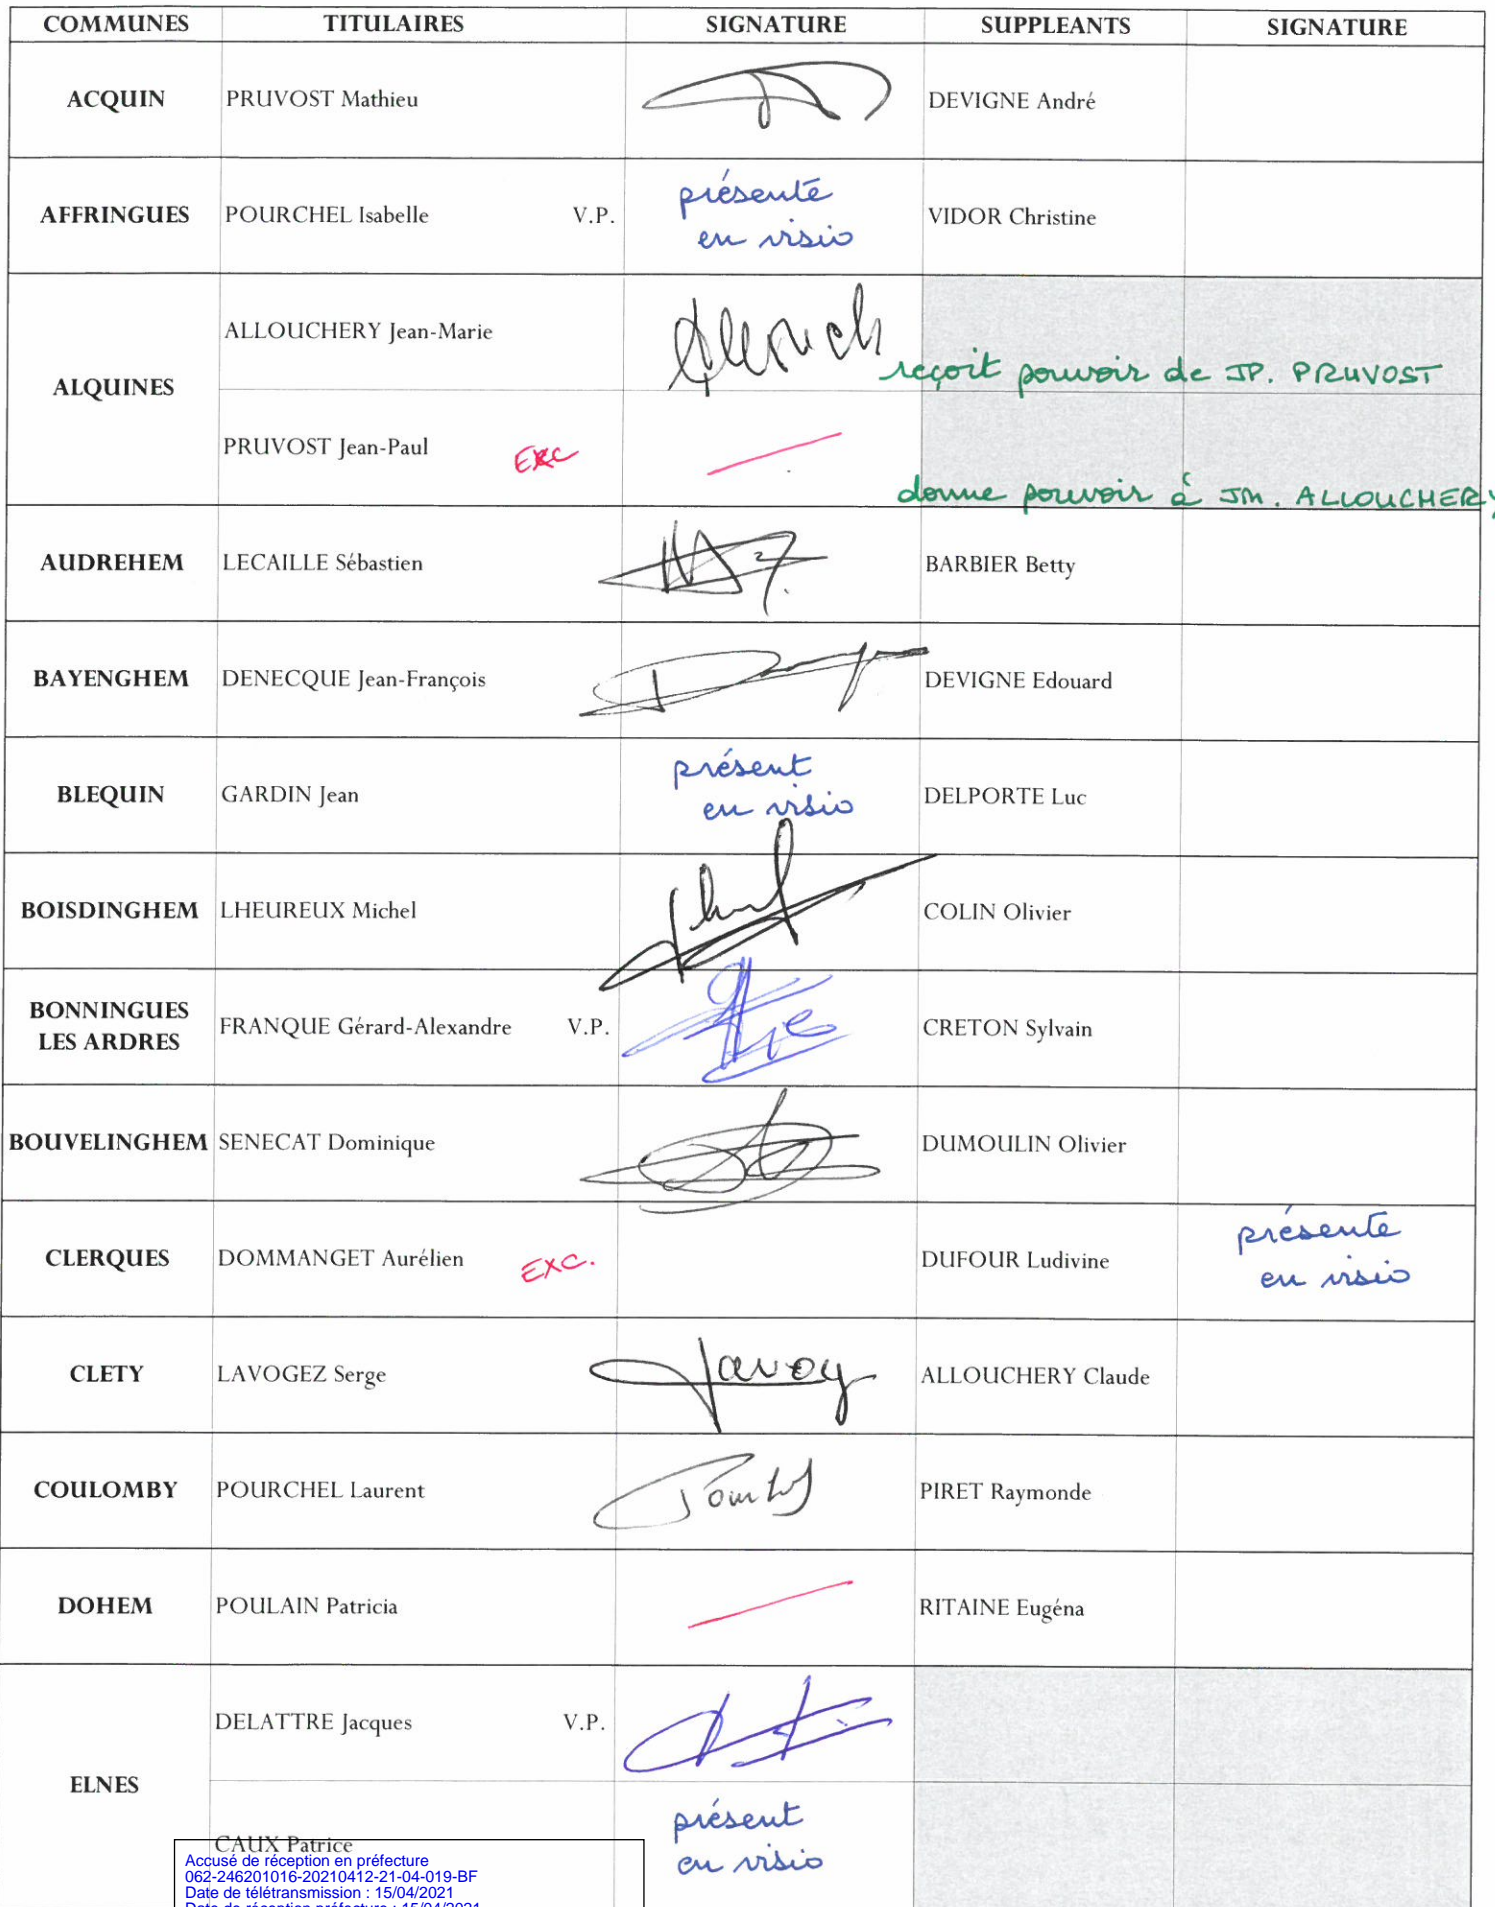 COMMUNES TITULAIRES SIGNATURE SUPPLEANTS SIGNATURE
ACQUIN PRUVOST Mathieu DEVIGNE André
AFFRINGUES POURCHEL Isabelle V.P. présente en visio VIDOR Christine
ALQUINES
ALLOUCHERY Jean-Marie
reçoit pouvoir de JP. PRUVOST
PRUVOST Jean-Paul EXC
donne pouvoir à JM. ALLOUCHERY
AUDREHEM LECAILLE Sébastien BARBIER Betty
BAYENGHEM DENECQUE Jean-François DEVIGNE Edouard
BLEQUIN GARDIN Jean présent en visio DELPORTE Luc
BOISDINGHEM LHEUREUX Michel COLIN Olivier
BONNINGUES
LES ARDRES
FRANQUE Gérard-Alexandre V.P. CRETON Sylvain
BOUVELINGHEM SENECAT Dominique DUMOULIN Olivier
CLERQUES DOMMANGET Aurélien EXC. DUFOUR Ludivine présente en visio
CLETY LAVOGEZ Serge ALLOUCHERY Claude
COULOMBY POURCHEL Laurent PIRET Raymonde
DOHEM POULAIN Patricia RITAINE Eugéna
ELNES
DELATTRE Jacques V.P.
CAUX Patrice présent en visio
Accusé de réception en préfecture
062-246201016-20210412-21-04-019-BF
Date de télétransmission : 15/04/2021
Date de réception préfecture : 15/04/2021